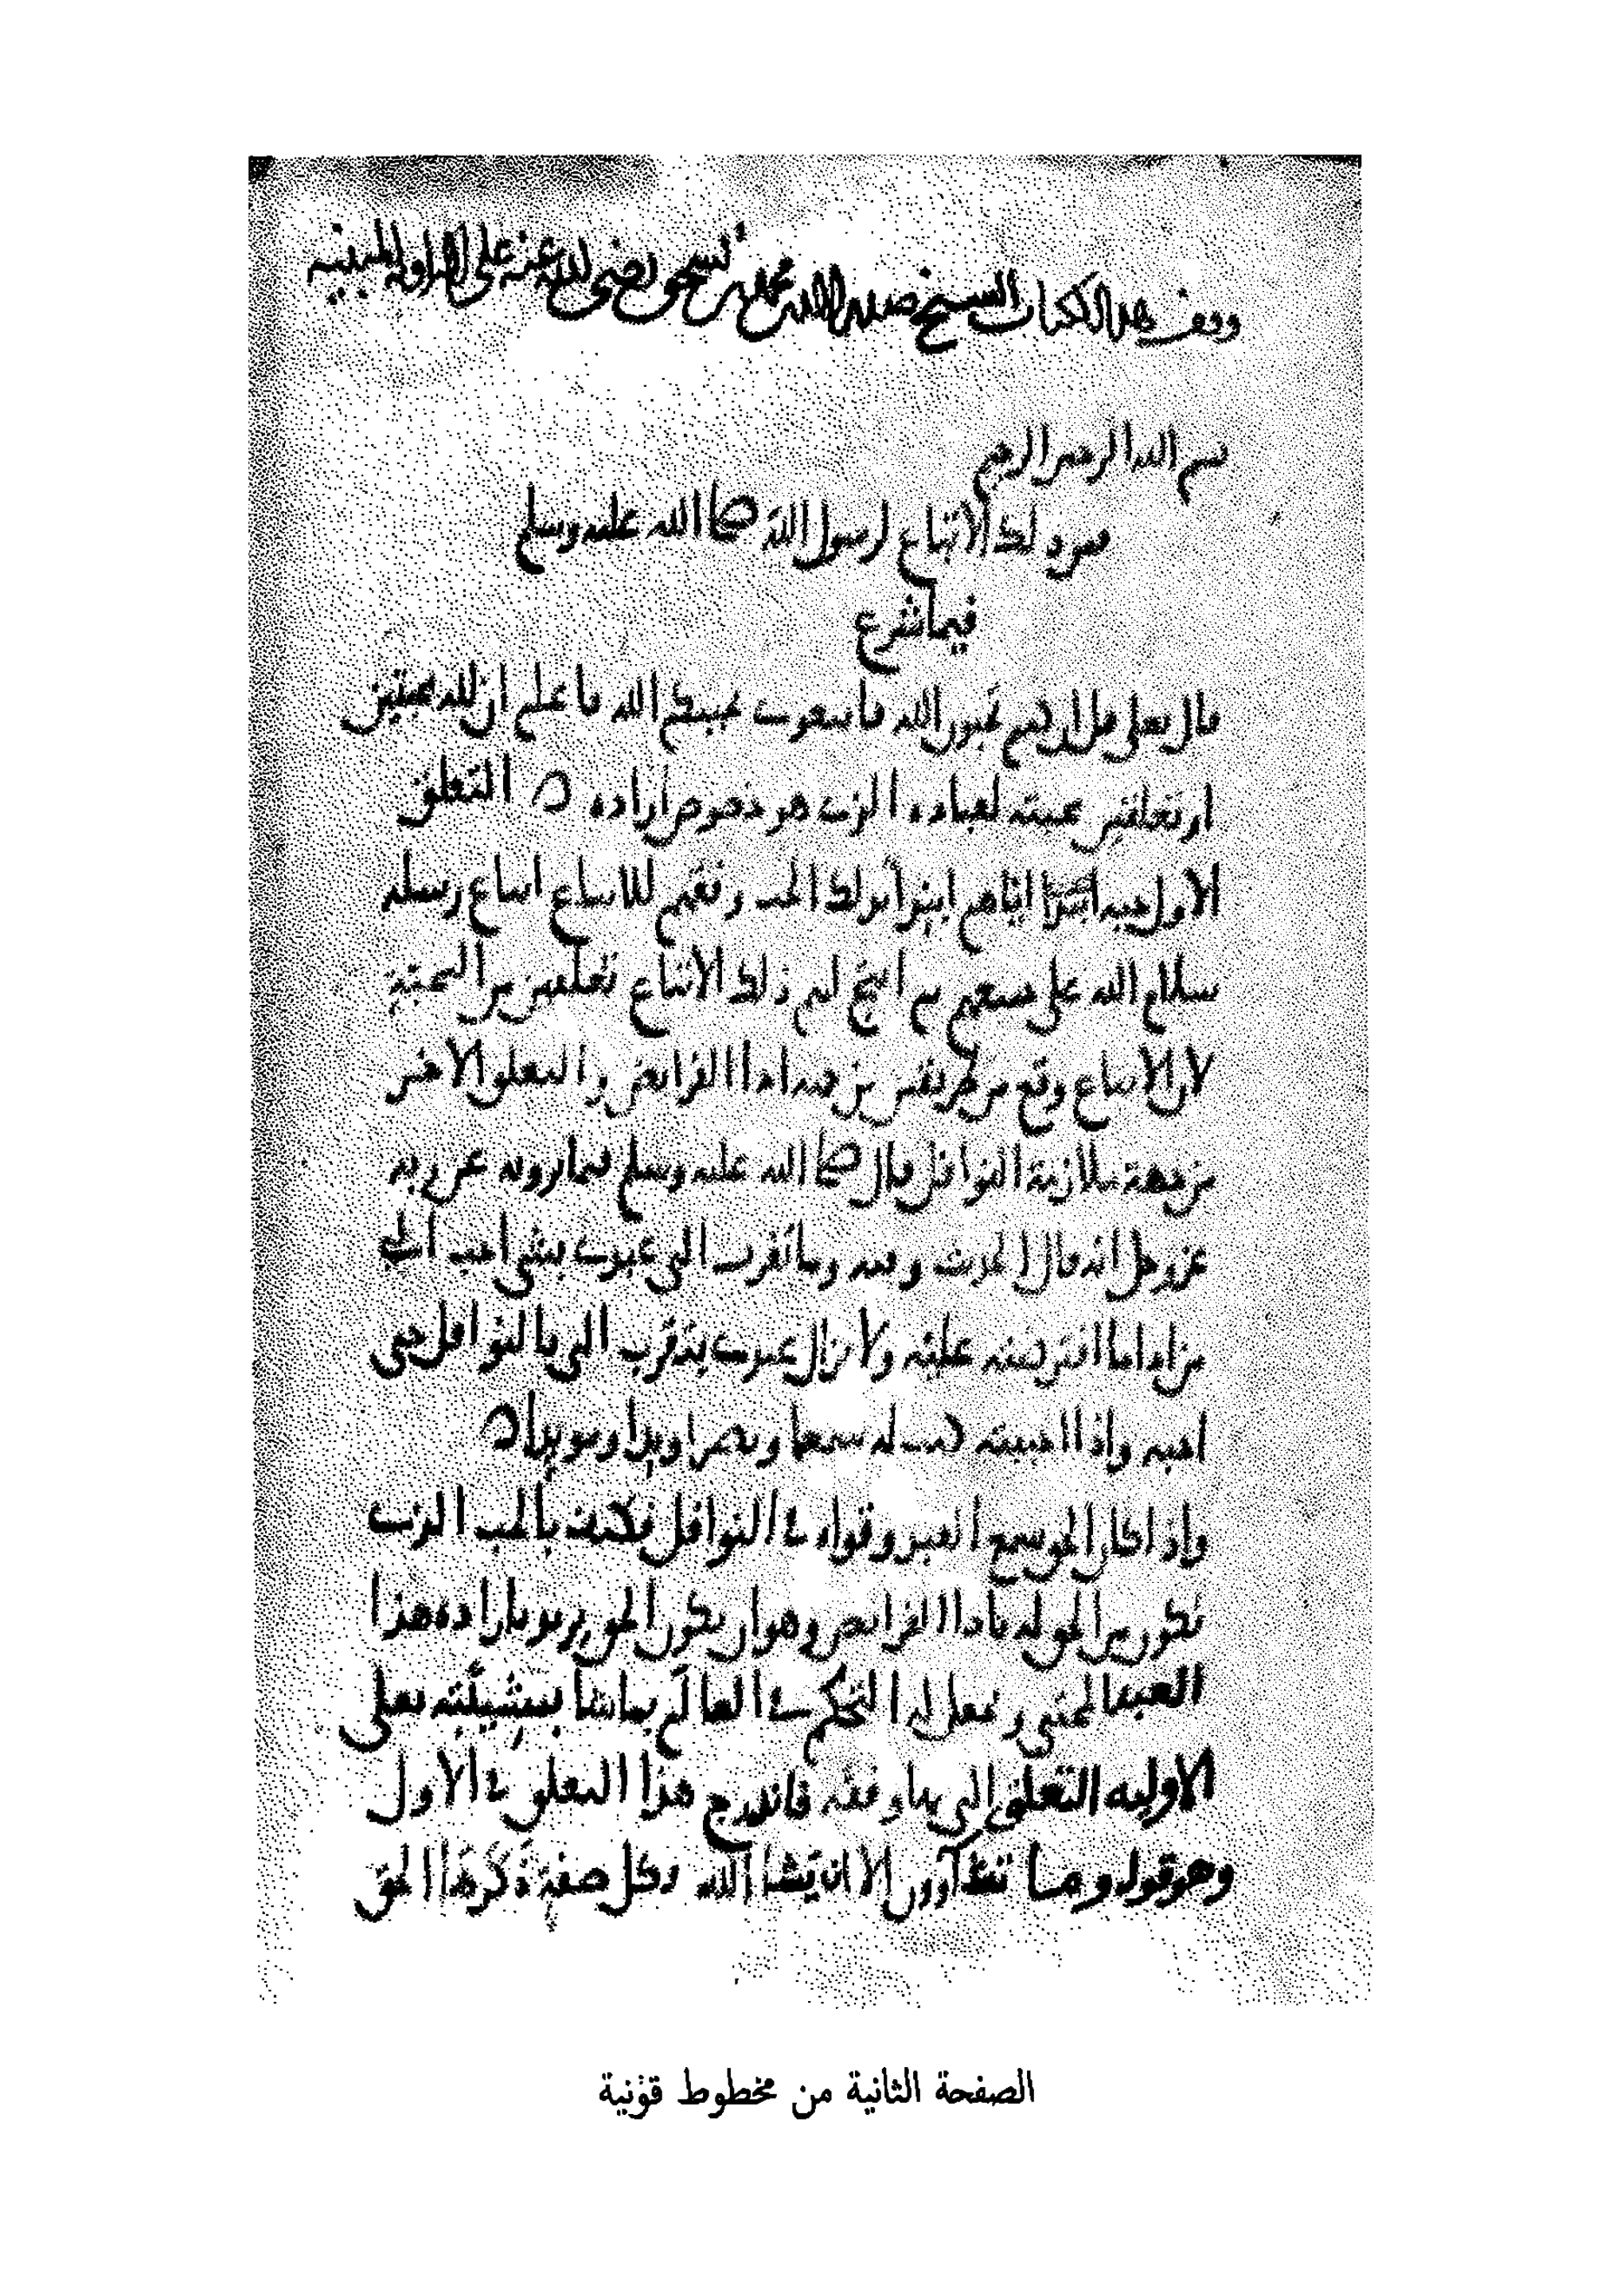 وقف هذا الكتاب الشيخ صدر الدين محمد بن اسحق رضي الله عنه على الزاوية المبنية
بسم الله الرحمن الرحيم
فمن ذلك الاتباع لرسول الله صلى الله عليه وسلم
فيما شرع
قال تعلى قل ان كنتم تحبون الله فاتبعوني يحببكم الله فاعلم ان لله محبتين
او تعلقين محبته لعباده الذي هو خصوص ارادة ه التعلق
الاول حبه اياهم ابتدا بذلك الحب وفقهم للاتباع اتباع رسله
سلام الله على جميعهم ثم انتج لهم ذلك الاتباع تعلقين من المحبة
لان الاتباع وقع من طريقين من جهة ادا الفرايض والتعلق الاخر
من جهة ملازمة النوافل قال صلى الله عليه وسلم فيما يرويه عن ربه
عز وجل انه قال الحديث وفيه وما تقرب الي عبدي بشي احب الي
من ادا ما افترضته عليه ولا يزال عبدي يتقرب الي بالنوافل حتى
احبه واذا احببته كنت له سمعا وبصرا ويدا ومويدا ه
واذا كان الحق سمع العبد وقواه في النوافل فكيف بالحب الذي
يكون من الحق له بادا الفرايض وهو ان يكون الحق يريد بارادة هذا
العبد المجتبى ويجعل له التحكم في العالم بما شا بمشيئته تعلى
الاولية التعلق التي بها وفقه فاندرج هذا التعلق في الاول
وهو قوله وما تشاوون الا ان يشا الله وكل صفة ذكرها الحق
الصفحة الثانية من مخطوط قونية